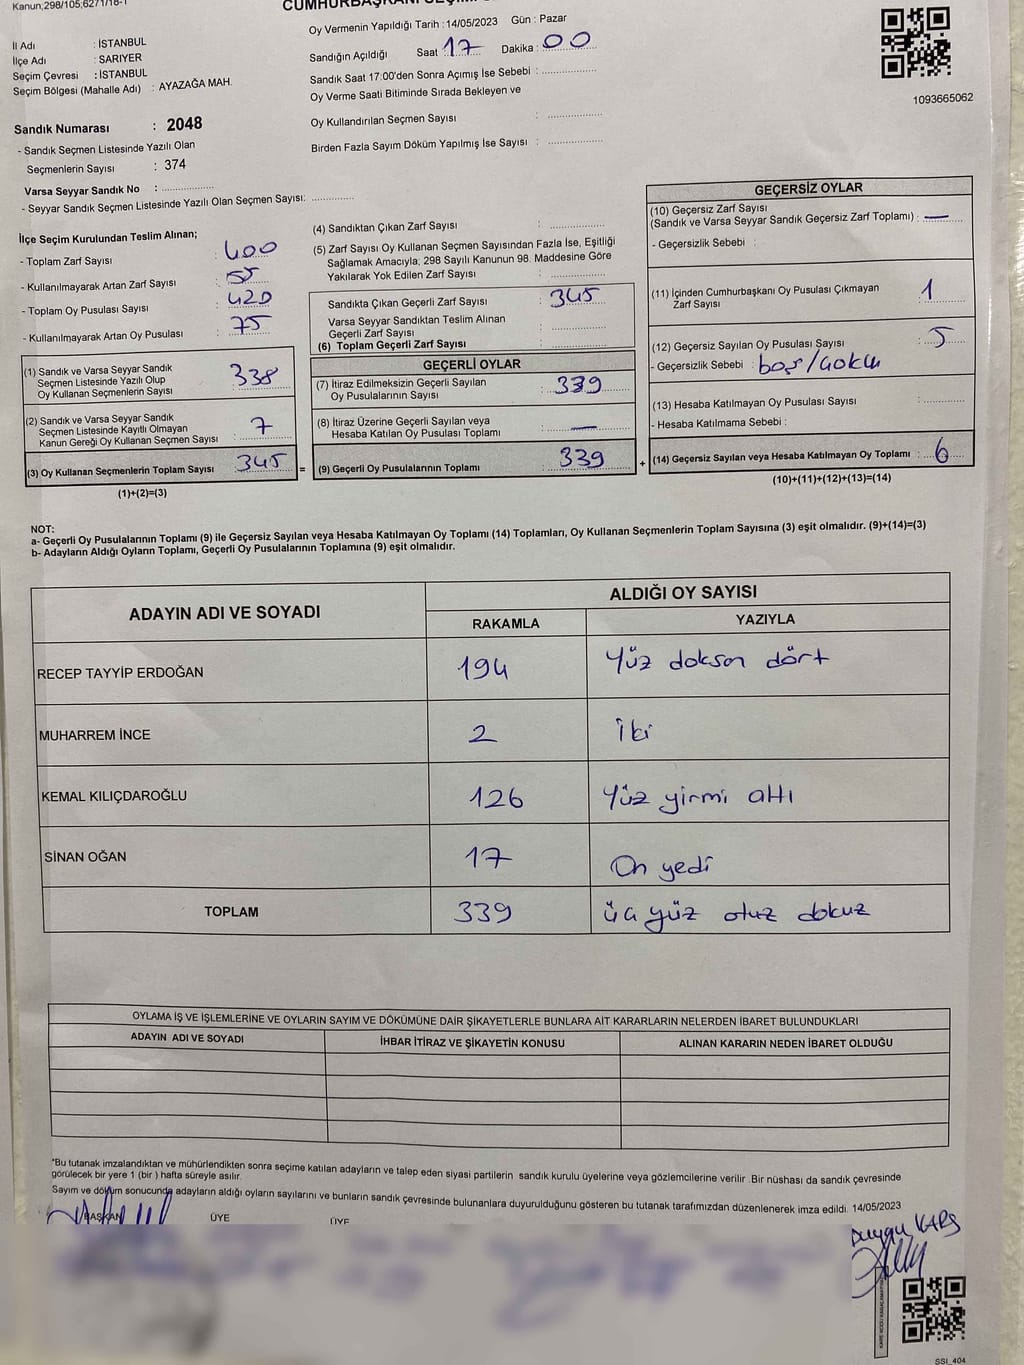 Kanun;298/105,6271/18-1
Oy Vermenin Yapıldığı Tarih : 14/05/2023 Gün : Pazar
İl Adı : İSTANBUL
İlçe Adı : SARIYER
Seçim Çevresi : İSTANBUL
Seçim Bölgesi (Mahalle Adı) : AYAZAĞA MAH.
Sandığın Açıldığı Saat 17 Dakika : 00
Sandık Saat 17:00'den Sonra Açımış İse Sebebi :
Oy Verme Saati Bitiminde Sırada Bekleyen ve
Oy Kullandırılan Seçmen Sayısı :
Birden Fazla Sayım Döküm Yapılmış İse Sayısı :
1093665062
Sandık Numarası : 2048
- Sandık Seçmen Listesinde Yazılı Olan
Seçmenlerin Sayısı : 374
Varsa Seyyar Sandık No :
- Seyyar Sandık Seçmen Listesinde Yazılı Olan Seçmen Sayısı:
İlçe Seçim Kurulundan Teslim Alınan;
- Toplam Zarf Sayısı : 400
- Kullanılmayarak Artan Zarf Sayısı : 55
- Toplam Oy Pusulası Sayısı : 420
- Kullanılmayarak Artan Oy Pusulası : 75
(1) Sandık ve Varsa Seyyar Sandık
Seçmen Listesinde Yazılı Olup
Oy Kullanan Seçmenlerin Sayısı : 338
(2) Sandık ve Varsa Seyyar Sandık
Seçmen Listesinde Kayıtlı Olmayan
Kanun Gereği Oy Kullanan Seçmen Sayısı : 7
(3) Oy Kullanan Seçmenlerin Toplam Sayısı : 345 =
(1)+(2)=(3)
(4) Sandıktan Çıkan Zarf Sayısı :
(5) Zarf Sayısı Oy Kullanan Seçmen Sayısından Fazla İse, Eşitliği
Sağlamak Amacıyla, 298 Sayılı Kanunun 98. Maddesine Göre
Yakılarak Yok Edilen Zarf Sayısı :
Sandıkta Çıkan Geçerli Zarf Sayısı : 345
Varsa Seyyar Sandıktan Teslim Alınan
Geçerli Zarf Sayısı :
(6) Toplam Geçerli Zarf Sayısı :
GEÇERLİ OYLAR
(7) İtiraz Edilmeksizin Geçerli Sayılan
Oy Pusulalarının Sayısı : 339
(8) İtiraz Üzerine Geçerli Sayılan veya
Hesaba Katılan Oy Pusulası Toplamı : —
(9) Geçerli Oy Pusulalarının Toplamı : 339 +
GEÇERSİZ OYLAR
(10) Geçersiz Zarf Sayısı
(Sandık ve Varsa Seyyar Sandık Geçersiz Zarf Toplamı) : —
- Geçersizlik Sebebi :
(11) İçinden Cumhurbaşkanı Oy Pusulası Çıkmayan
Zarf Sayısı : 1
(12) Geçersiz Sayılan Oy Pusulası Sayısı : 5
- Geçersizlik Sebebi : boş/
(13) Hesaba Katılmayan Oy Pusulası Sayısı :
- Hesaba Katılmama Sebebi :
(14) Geçersiz Sayılan veya Hesaba Katılmayan Oy Toplamı : 6
(10)+(11)+(12)+(13)=(14)
NOT:
a- Geçerli Oy Pusulalarının Toplamı (9) ile Geçersiz Sayılan veya Hesaba Katılmayan Oy Toplamı (14) Toplamları, Oy Kullanan Seçmenlerin Toplam Sayısına (3) eşit olmalıdır. (9)+(14)=(3)
b- Adayların Aldığı Oyların Toplamı, Geçerli Oy Pusulalarının Toplamına (9) eşit olmalıdır.
ADAYIN ADI VE SOYADI ALDIĞI OY SAYISI
RAKAMLA YAZIYLA
RECEP TAYYİP ERDOĞAN 194 Yüz doksan dört
MUHARREM İNCE 2 İki
KEMAL KILIÇDAROĞLU 126 Yüz yirmi altı
SİNAN OĞAN 17 On yedi
TOPLAM 339 üç yüz otuz dokuz
OYLAMA İŞ VE İŞLEMLERİNE VE OYLARIN SAYIM VE DÖKÜMÜNE DAİR ŞİKAYETLERLE BUNLARA AİT KARARLARIN NELERDEN İBARET BULUNDUKLARI
ADAYIN ADI VE SOYADI İHBAR İTİRAZ VE ŞİKAYETİN KONUSU ALINAN KARARIN NEDEN İBARET OLDUĞU
*Bu tutanak imzalandıktan ve mühürlendikten sonra seçime katılan adayların ve talep eden siyasi partilerin sandık kurulu üyelerine veya gözlemcilerine verilir .Bir nüshası da sandık çevresinde
görülecek bir yere 1 (bir ) hafta süreyle asılır.
Sayım ve döküm sonucunda adayların aldığı oyların sayılarını ve bunların sandık çevresinde bulunanlara duyurulduğunu gösteren bu tutanak tarafımızdan düzenlenerek imza edildi. 14/05/2023
BAŞKAN ÜYE ÜYE
SSI_404